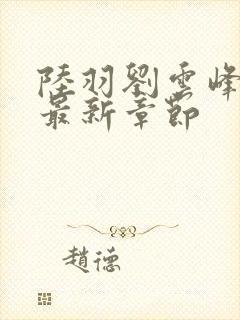 陸羽劉雲峰
最新章節
趙德